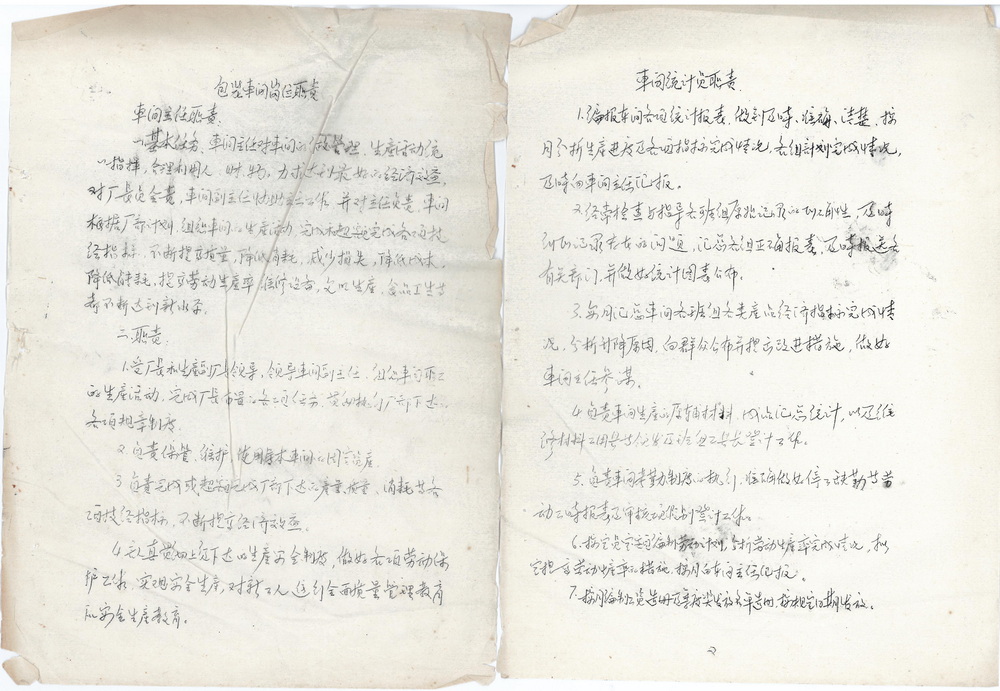 包装车间岗位职责
车间主任职责
一、基本任务、车间主任对车间的管理、生产活动统
一指挥,合理利用人、财、物,力求达到最好的经济效益,
对厂长负全责,车间副主任协助主任 并对主任负责,车间
根据厂部计划,组织车间的生产活动,完成和超额完成各项技
经指标,不断提高质量,降低消耗,减少损失,降低成本,
降低能耗,提高劳动生产率 维修设备,文明生产,卫生等
都不断达到新水平。
二、职责:
1.受厂长和生产副厂长领导,领导车间副主任,组织车间职工
的生产活动,完成厂长布置的各项任务,执行厂部下达的
各项规章制度。
2.负责保管、维护、使用本车间的固定资产
3.负责完成或超额完成厂部下达的产量、质量、消耗等各
项技经指标,不断提高经济效益。
4.认真贯彻上级下达的生产安全制度,做好各项劳动保
护工作,实现安全生产,对新工人进行全面质量管理教育
和安全生产教育。
车间统计员职责
1.编报车间各项统计报表,做到及时、准确、清楚,按
月分析生产进度及各项指标完成情况,各组计划完成情况,
及时向车间主任汇报。
2.经常检查与指导各班组原始记录的正确性,及时
纠正记录存在的问题,汇总各组正确报表,及时报送各
有关部门,并做好统计图表公布。
3.每月汇总车间各班组各类产品经济指标完成情
况,分析升降原因,向群众公布并提出改进措施,做好
车间主任参谋。
4.负责车间生产的原辅材料,成品汇总统计,以及维
修材料 登计工作。
5.负责车间考勤制度的执行,准确做好停工缺勤等
动工时报表及审核 登计工作。
6.按定员定额编制劳动计划,分析劳动生产率完成情况,拟
定提高劳动生产率的措施 按月向车间主任汇报。
7.按月编制工资造册及 奖发放名单造册,按规定日期发放。
2